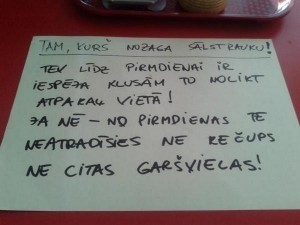 TAM, KURŠ NOZAGA SĀLSTRAUKU!
TEV LĪDZ PIRMDIENAI IR
IESPĒJA KLUSĀM TO NOLIKT
ATPAKAĻ VIETĀ!
JA NĒ - NO PIRMDIENAS TE
NEATRADĪSIES NE KEČUPS
NE CITAS GARŠVIELAS!